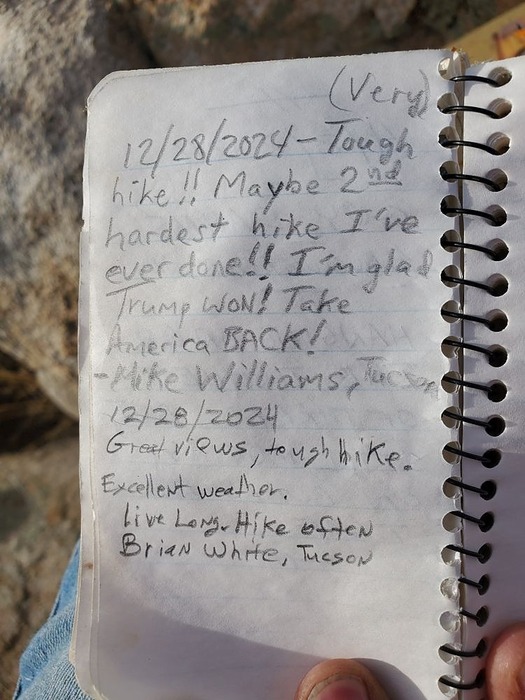 (Very)
12/28/2024 - Tough
hike!! Maybe 2nd
hardest hike I've
ever done!! I'm glad
Trump WON! Take
America BACK!
-Mike Williams, Tucson
12/28/2024
Great views, tough hike.
Excellent weather.
Live Long. Hike often
Brian White, Tucson